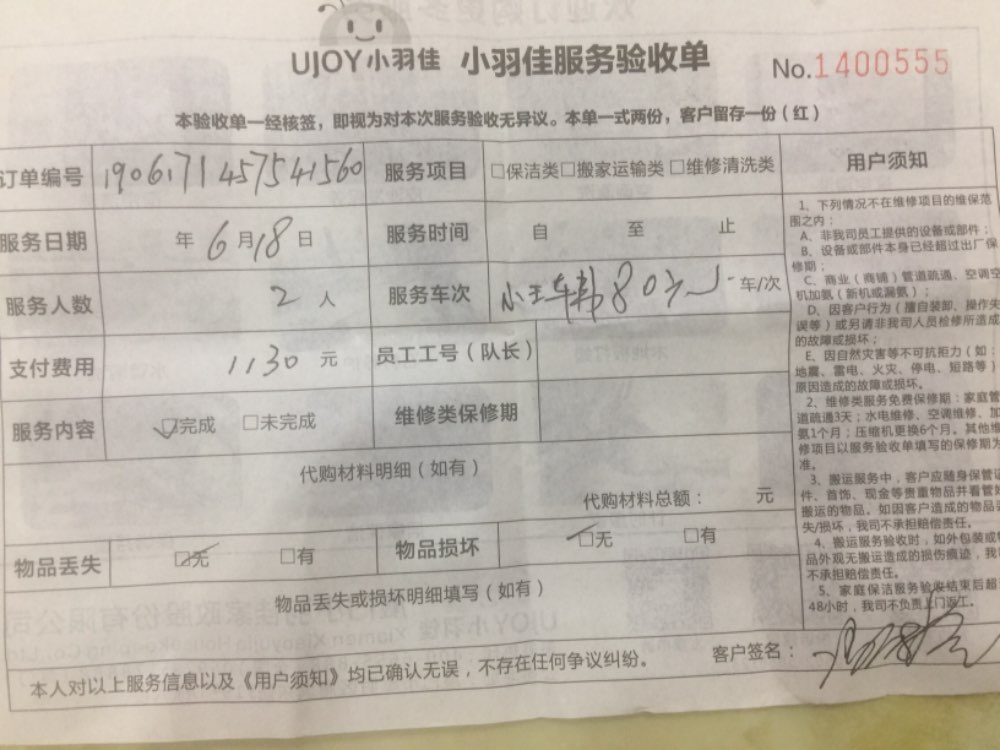 UJOY小羽佳 小羽佳服务验收单 No.1400555
本验收单一经核签，即视为对本次服务验收无异议。本单一式两份，客户留存一份（红）
订单编号 190617145754156０ 服务项目 □保洁类□搬家运输类□维修清洗类
服务日期 年6月18日 服务时间 自 至 止
服务人数 2人 服务车次 80元 车/次
支付费用 1130元 员工工号（队长）
服务内容 ☑完成 □未完成 维修类保修期
代购材料明细（如有）
代购材料总额： 元
物品丢失 ☑无 □有 物品损坏 ☑无 □有
物品丢失或损坏明细填写（如有）
本人对以上服务信息以及《用户须知》均已确认无误，不存在任何争议纠纷。 客户签名：
用户须知
1、下列情况不在维修项目的维保范
围之内：
A、非我司员工提供的设备或部件；
B、设备或部件本身已经超过出厂保
修期；
C、商业（商铺）管道疏通、空调空
机加氨（新机或漏氨）；
D、因客户行为（擅自装卸、操作失
误等）或另请非我司人员检修所造成
的故障或损坏；
E、因自然灾害等不可抗拒力（如：
地震、雷电、火灾、停电、短路等）
原因造成的故障或损坏。
2、维修类服务免费保修期：家庭管
道疏通3天；水电维修、空调维修、加
氨1个月；压缩机更换6个月。其他维
修项目以服务验收单填写的保修期为
准。
3、搬运服务中，客户应随身保管证
件、首饰、现金等贵重物品并看管
搬运的物品。如因客户造成的物品丢
失/损坏，我司不承担赔偿责任。
4、搬运服务验收时，如外包装或物
品外观无搬运造成的损伤痕迹，我
不承担赔偿责任。
5、家庭保洁服务验收结束后超
48小时，我司不负责上门返工。